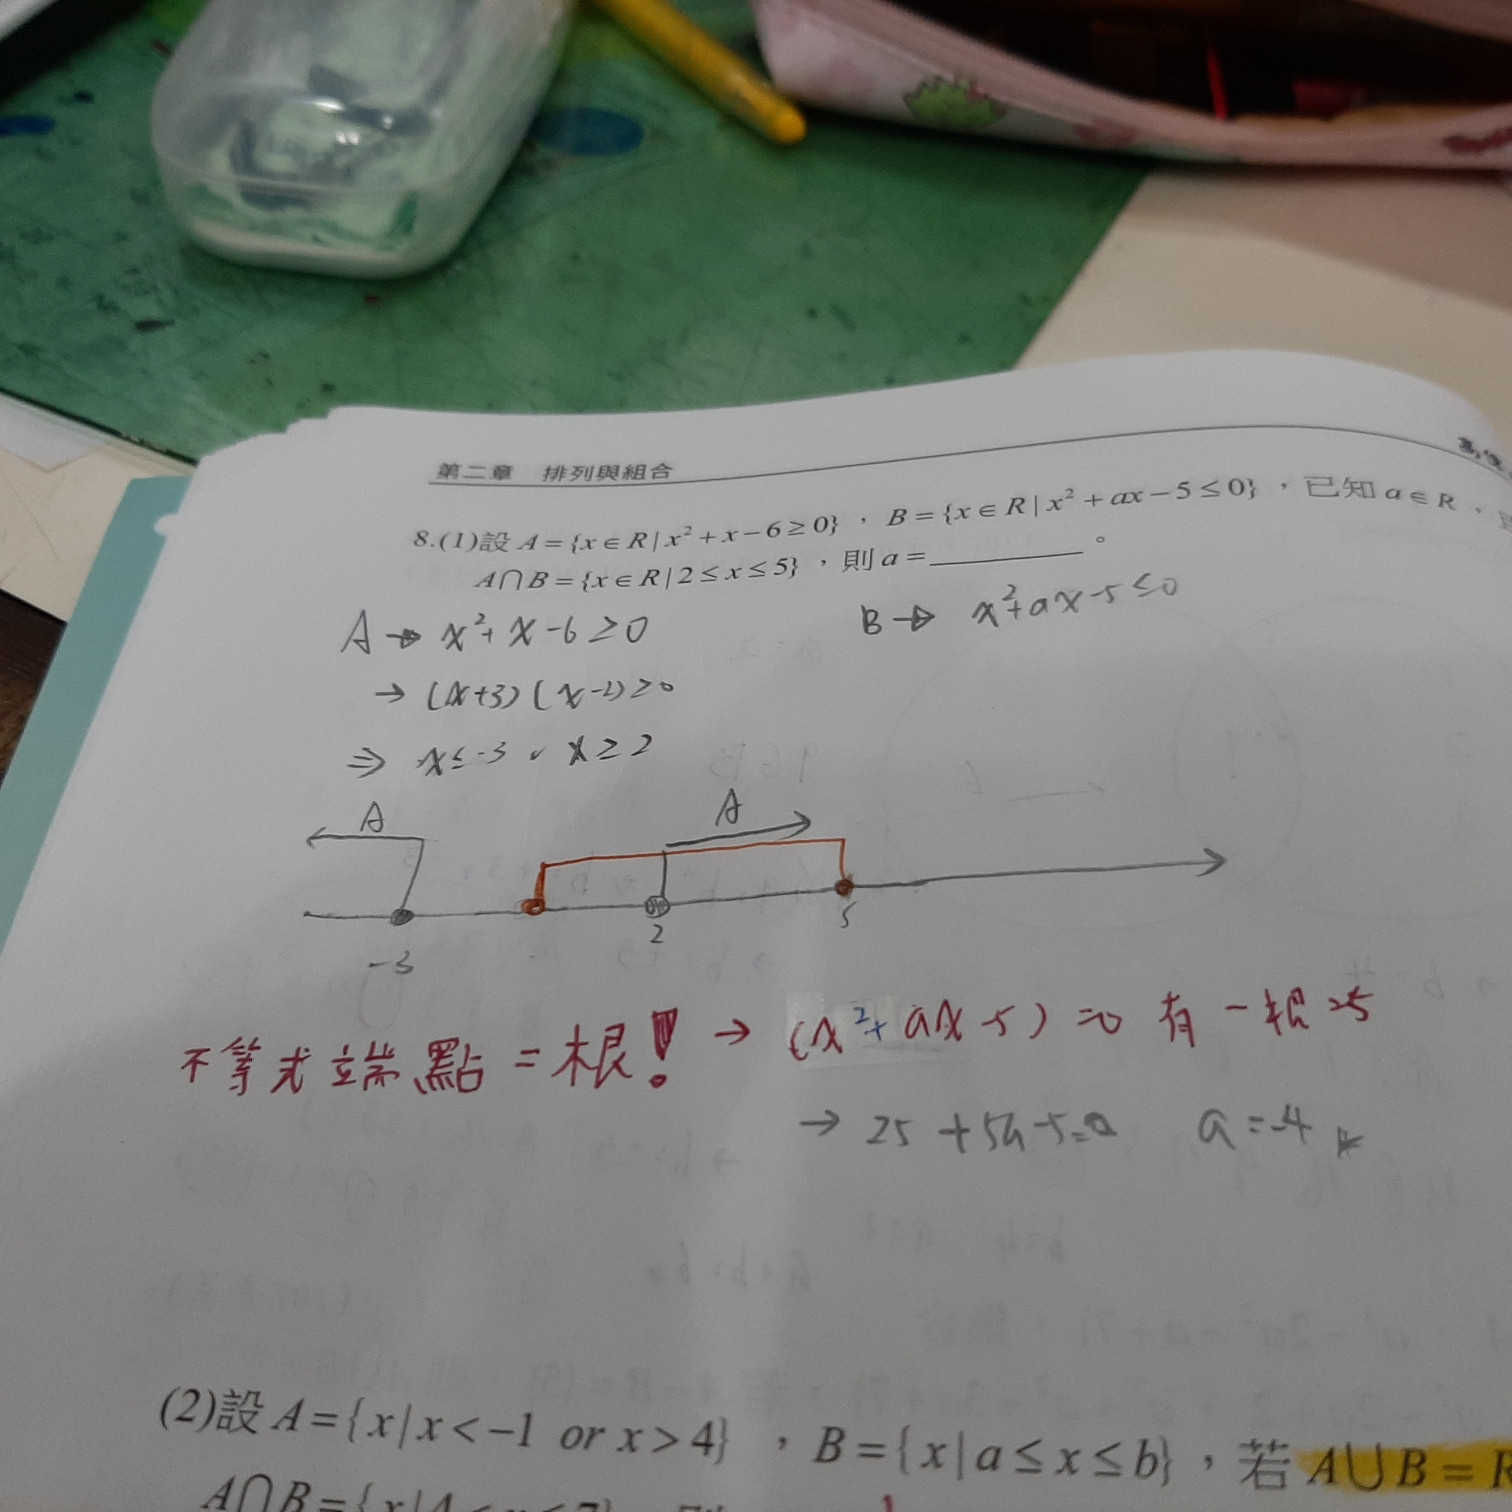 第二章 排列與組合
8.(1)設 A={x∈R|x²+x−6≥0},B={x∈R|x²+ax−5≤0},已知 a∈R,
A∩B={x∈R|2≤x≤5},則 a=________。
A→ x²+x-6≥0 B→ x²+ax-5≤0
→ (x+3)(x-2)≥0
⇒ x≤-3 , x≥2
A A
-3 2 5
不等式端點=根! → (x²+ax-5)=0 有一根為5
→ 25+5a-5=0 a=-4
(2)設 A={x|x<−1 or x>4},B={x|a≤x≤b},若 A∪B=R
A∩B={x|4<x≤7}